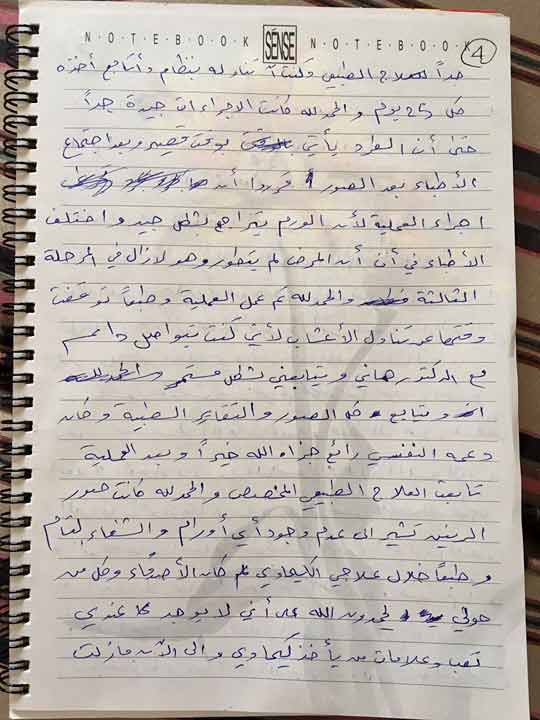 N·O·T·E·B·O·O·K SENSE N·O·T·E·B·O·O·K
4
جداً للعلاج الطبيعي وكنت أتناوله بنظام وأتابع أخذه
كل 25 يوم والحمدلله كانت الاجراءات جيدة جداً
حتى أن الطرد يأتي بوقت قصير وبعد اجتماع
الأطباء بعد الصور قرروا أن
اجراء العملية لأن الورم يتراجع بشكل جيد واختلف
الأطباء في أن أن المرض لم يتطور وهو لازال في المرحلة
الثالثة والحمدلله تم عمل العملية وطبعاً توقفت
وقتها عن تناول الأعشاب لأني كنت بتواصل دائم
مع الدكتور هاني ويتابعني بشكل مستمر
ويتابع كل الصور والتقارير الطبية وكان
دعمه النفسي رائع جزاه الله خيراً وبعد العملية
تابعت العلاج الطبيعي المخصص والحمدلله كانت صور
الرنين تشير الى عدم وجود أي أورام والشفاء التام
وطبعاً خلال علاجي الكيماوي كان الأصدقاء وكل من
حولي يحمدون الله على أني لا يوجد عندي
تعب وعلامات من يأخذ كيماوي والى الآن مازلت